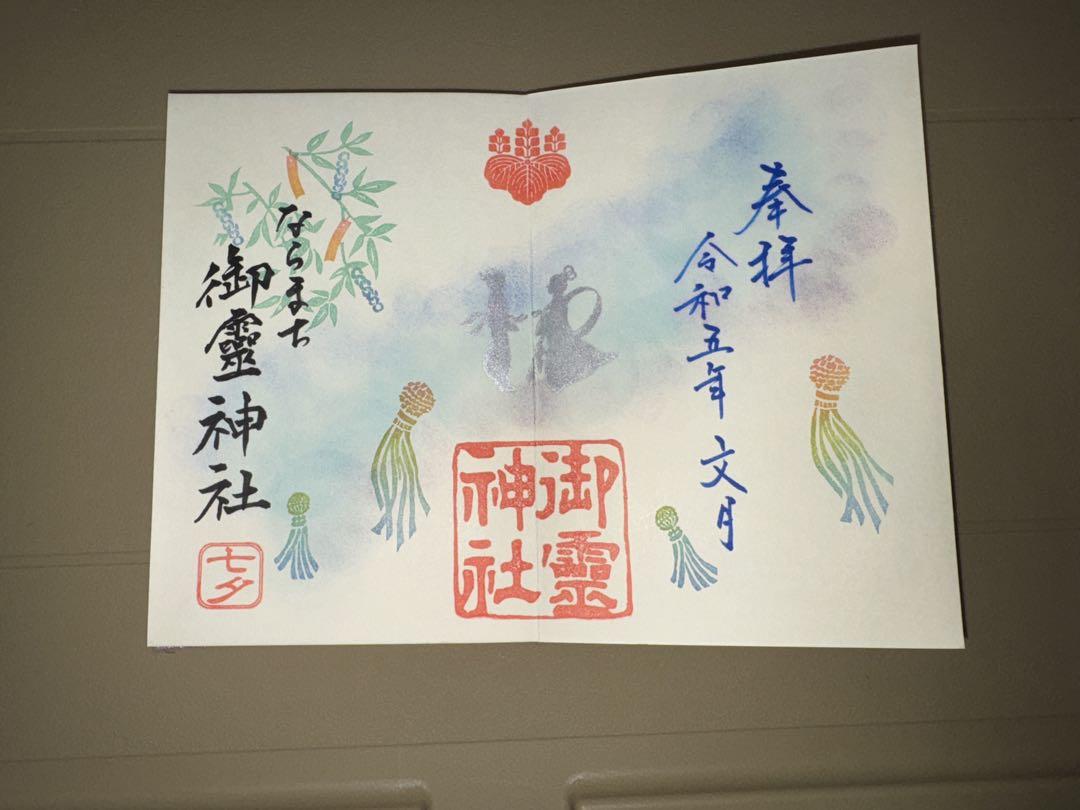 奉拝
令和五年 文月
御靈
神社
ならまち
御靈神社
七夕